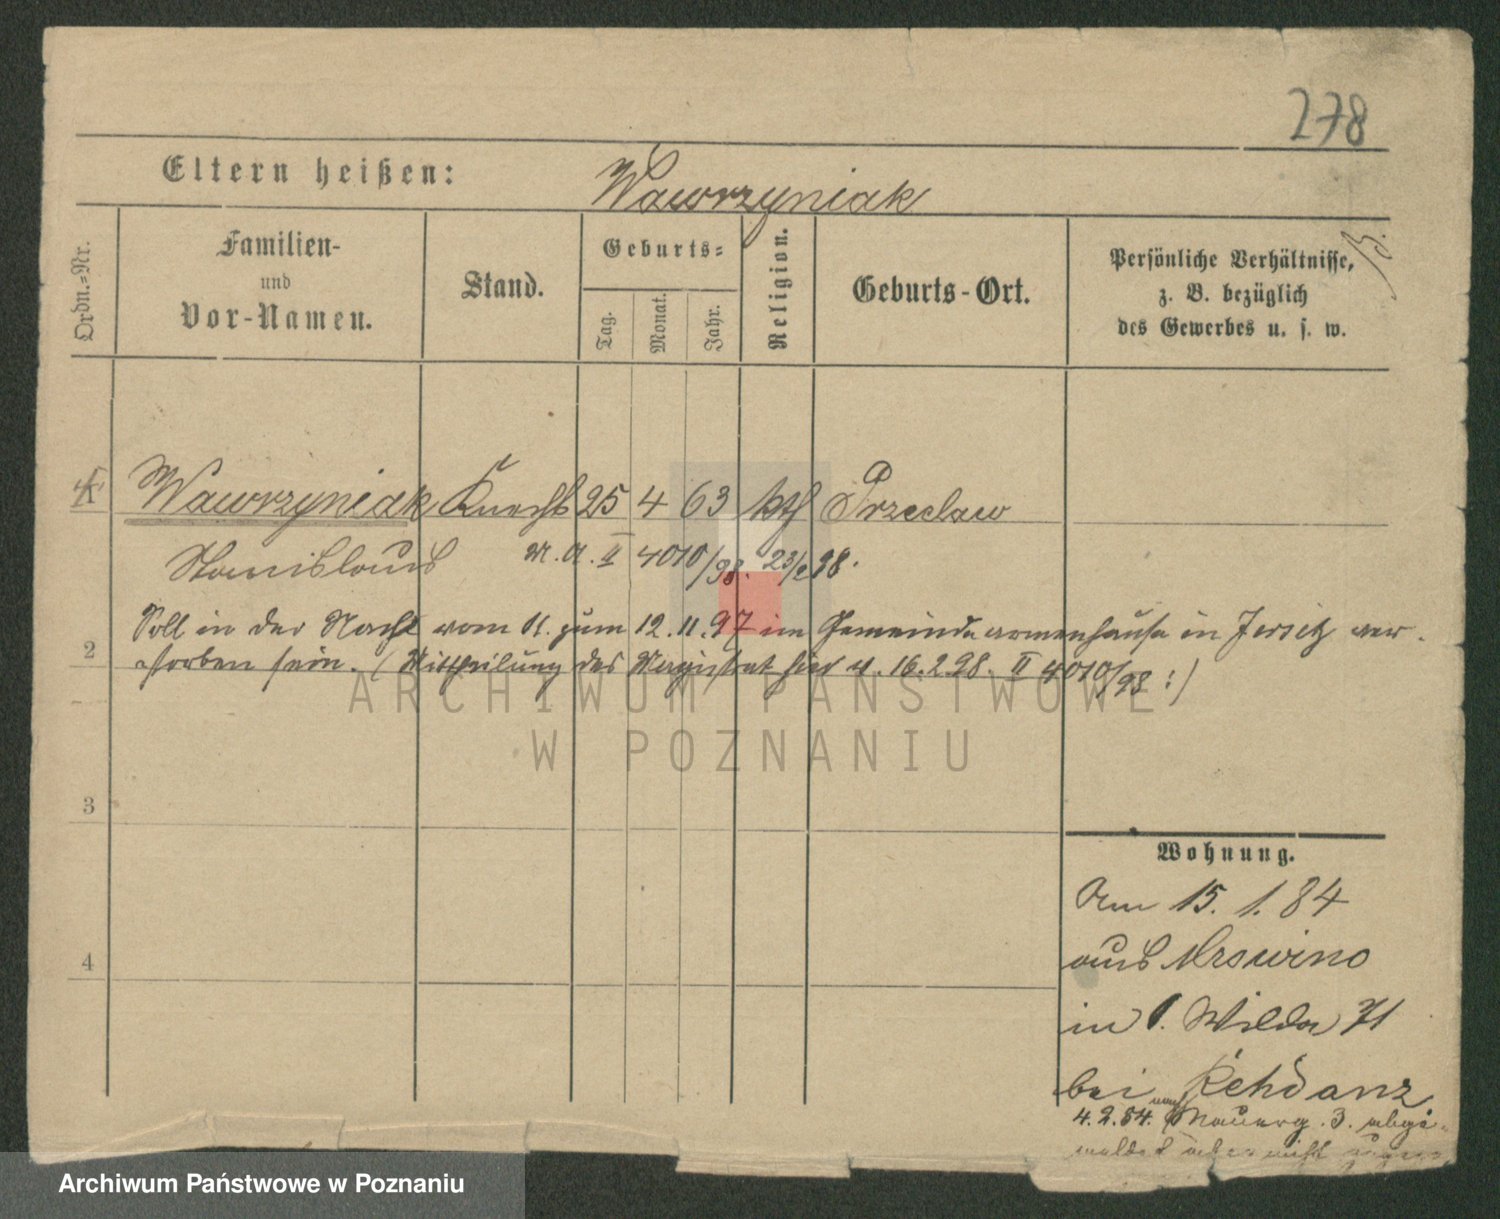 278
Eltern heißen: Wawrzyniak
B.
Ordn.-Nr.
Familien-
und
Vor-Namen.
Stand.
Geburts-
Tag.
Monat.
Jahr.
Religion.
Geburts-Ort.
Persönliche Verhältnisse,
z. B. bezüglich
des Gewerbes u. s. w.
1 Wawrzyniak Knecht 25 4 63 kth Przeclaw
Stanislaus M. A. II 4010/98. 23/2 98.
Soll in der Nacht vom 11. zum 12.11.97 im Gemeindearmenhause in Jersitz ver-
2 storben sein. (Mittheilung des Magistrat hier v. 16.2.98. II 4010/98:)
ARCHIWUM PAŃSTWOWE
W POZNANIU
3
4
Wohnung.
Am 15. 1. 84
aus Mrowino
in O. Wilda 71
bei Rehdanz
4.2.84. nach Mauerg. 3. abge-
meldet aber nicht
Archiwum Państwowe w Poznaniu